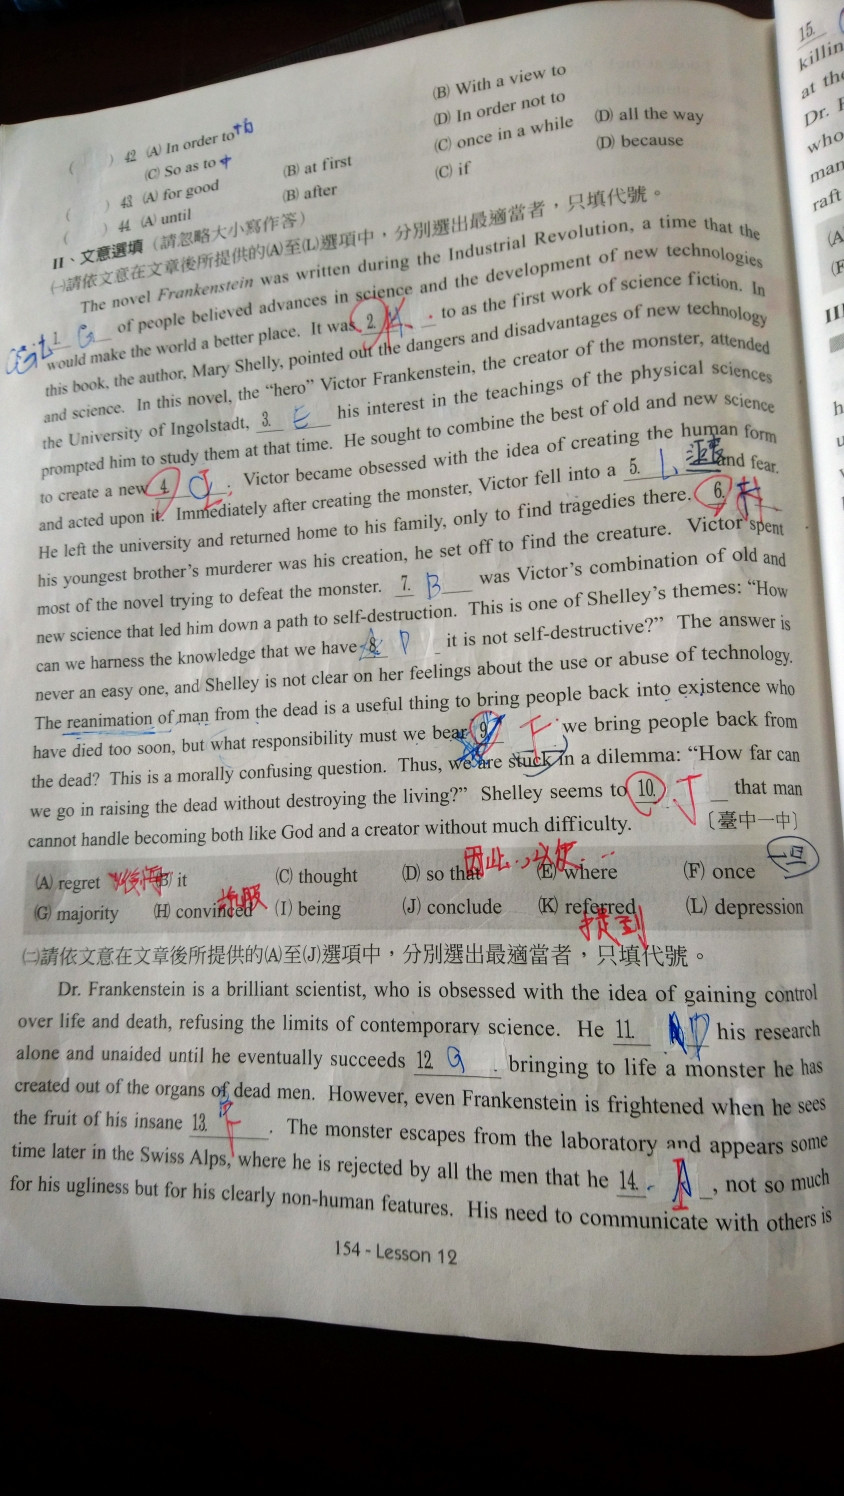 (B) With a view to
( ) 42 (A) In order to (D) In order not to
(C) So as to (C) once in a while (D) all the way
( ) 43 (A) for good (B) at first (D) because
( ) 44 (A) until (B) after (C) if
II、文意選填(請忽略大小寫作答)
㈠請依文意在文章後所提供的(A)至(L)選項中,分別選出最適當者,只填代號。
The novel Frankenstein was written during the Industrial Revolution, a time that the
1. G of people believed advances in science and the development of new technologies
would make the world a better place. It was 2. K to as the first work of science fiction. In
this book, the author, Mary Shelly, pointed out the dangers and disadvantages of new technology
and science. In this novel, the “hero” Victor Frankenstein, the creator of the monster, attended
the University of Ingolstadt, 3. E his interest in the teachings of the physical sciences
prompted him to study them at that time. He sought to combine the best of old and new science
to create a new 4. I . Victor became obsessed with the idea of creating the human form
and acted upon it. Immediately after creating the monster, Victor fell into a 5. L and fear.
He left the university and returned home to his family, only to find tragedies there. 6. H
his youngest brother’s murderer was his creation, he set off to find the creature. Victor spent
most of the novel trying to defeat the monster. 7. B was Victor’s combination of old and
new science that led him down a path to self-destruction. This is one of Shelley’s themes: “How
can we harness the knowledge that we have 8. D it is not self-destructive?” The answer is
never an easy one, and Shelley is not clear on her feelings about the use or abuse of technology.
The reanimation of man from the dead is a useful thing to bring people back into existence who
have died too soon, but what responsibility must we bear 9. F we bring people back from
the dead? This is a morally confusing question. Thus, we are stuck in a dilemma: “How far can
we go in raising the dead without destroying the living?” Shelley seems to 10. J that man
cannot handle becoming both like God and a creator without much difficulty. 〔臺中一中〕
(A) regret 後悔 (B) it (C) thought (D) so that 因此,以便… (E) where (F) once 一旦
(G) majority (H) convinced 說服 (I) being (J) conclude (K) referred 提到 (L) depression
㈡請依文意在文章後所提供的(A)至(J)選項中,分別選出最適當者,只填代號。
Dr. Frankenstein is a brilliant scientist, who is obsessed with the idea of gaining control
over life and death, refusing the limits of contemporary science. He 11. D his research
alone and unaided until he eventually succeeds 12. G bringing to life a monster he has
created out of the organs of dead men. However, even Frankenstein is frightened when he sees
the fruit of his insane 13. F . The monster escapes from the laboratory and appears some
time later in the Swiss Alps, where he is rejected by all the men that he 14. A , not so much
for his ugliness but for his clearly non-human features. His need to communicate with others is
154 - Lesson 12
15.
killin
at the
Dr. F
who
man
raft
(A
(F
III